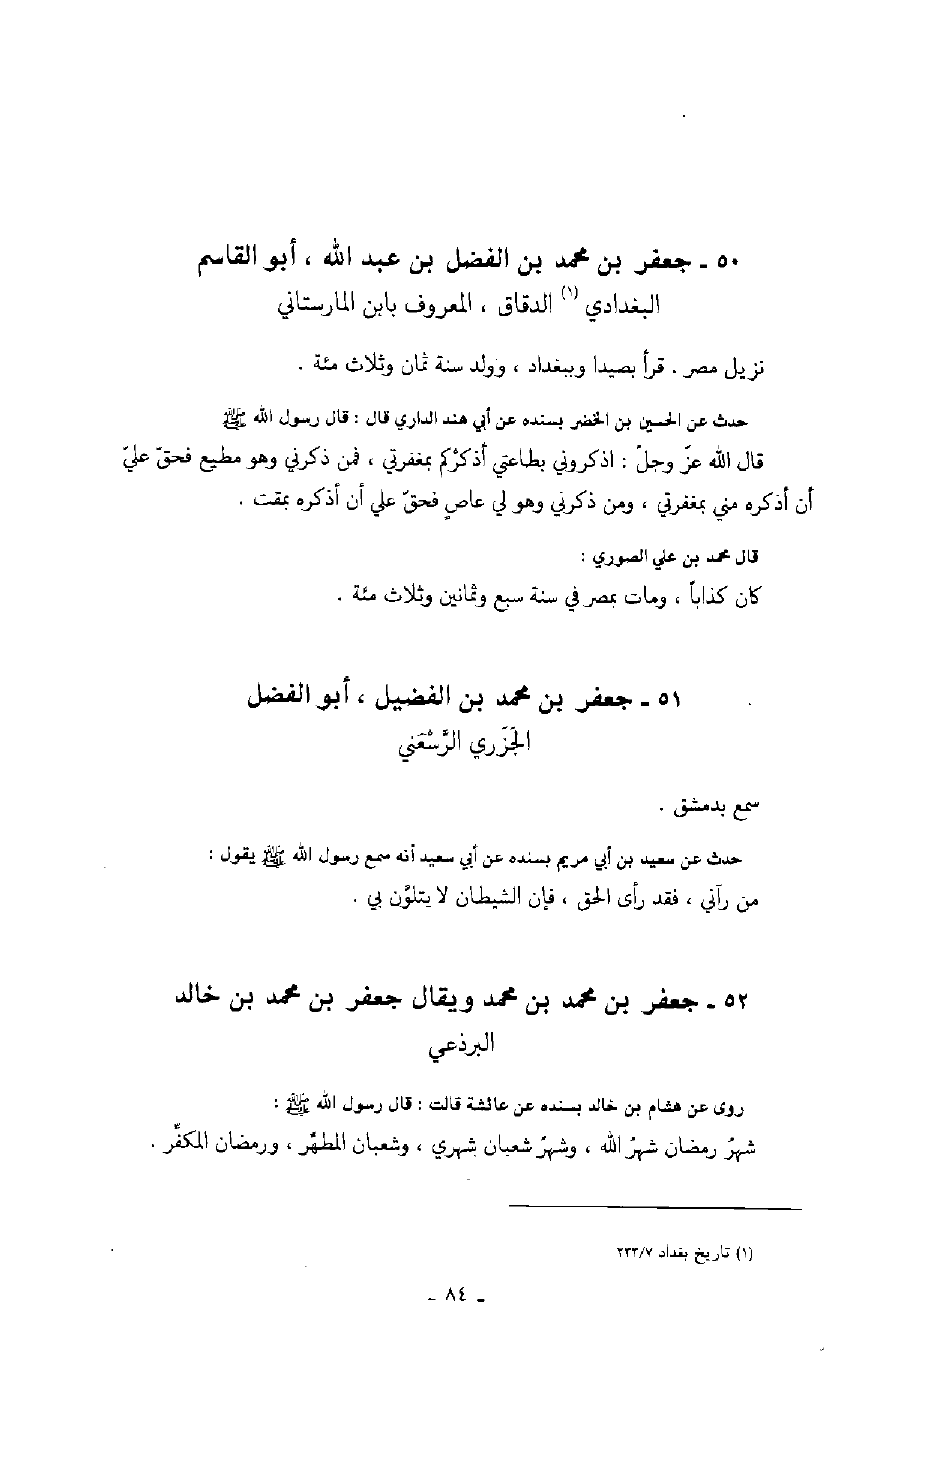 ٥٠ ـ جعفر بن محمد بن الفضل بن عبد الله ، أبو القاسم
البغدادي (١) الدقاق ، المعروف بابن المارستاني
نزيل مصر . قرأ بصيدا وببغداد ، وولد سنة ثمان وثلاث مئة .
حدث عن الحسين بن الخضر بسنده عن أبي هند الداري قال : قال رسول الله ﷺ
قال الله عزّ وجلّ : اذكروني بطاعتي أذكرْكم بمغفرتي ، فمن ذكرني وهو مطيع فحقّ عليّ
أن أذكره مني بمغفرتي ، ومن ذكرني وهو لي عاصٍ فحقّ علي أن أذكره بمقت .
قال محمد بن علي الصوري :
كان كذاباً ، ومات بمصر في سنة سبع وثمانين وثلاث مئة .
٥١ ـ جعفر بن محمد بن الفضيل ، أبو الفضل
الجَزَري الرَّسْعَني
سمع بدمشق .
حدث عن سعيد بن أبي مريم بسنده عن أبي سعيد أنه سمع رسول الله ﷺ يقول :
من رآني ، فقد رأى الحق ، فإن الشيطان لا يتلوَّن بي .
٥٢ ـ جعفر بن محمد بن محمد ويقال جعفر بن محمد بن خالد
البرذعي
روى عن هشام بن خالد بسنده عن عائشة قالت : قال رسول الله ﷺ :
شهرُ رمضان شهرُ الله ، وشهرُ شعبان شهري ، وشعبان المطهِّر ، ورمضان المكفِّر .
(١) تاريخ بغداد ٢٣٣/٧
ـ ٨٤ ـ